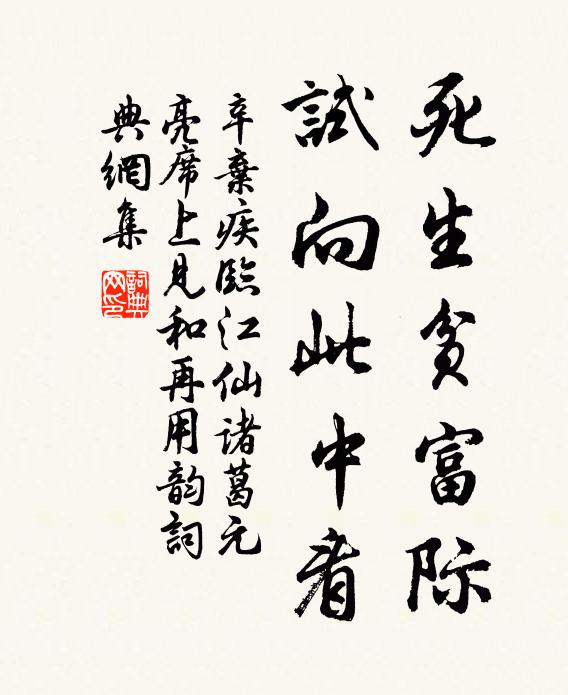 死生貧富際
試向此中看
辛棄疾臨江仙諸葛元
亮席上見和再用韵詞
典網集
詞典
网印